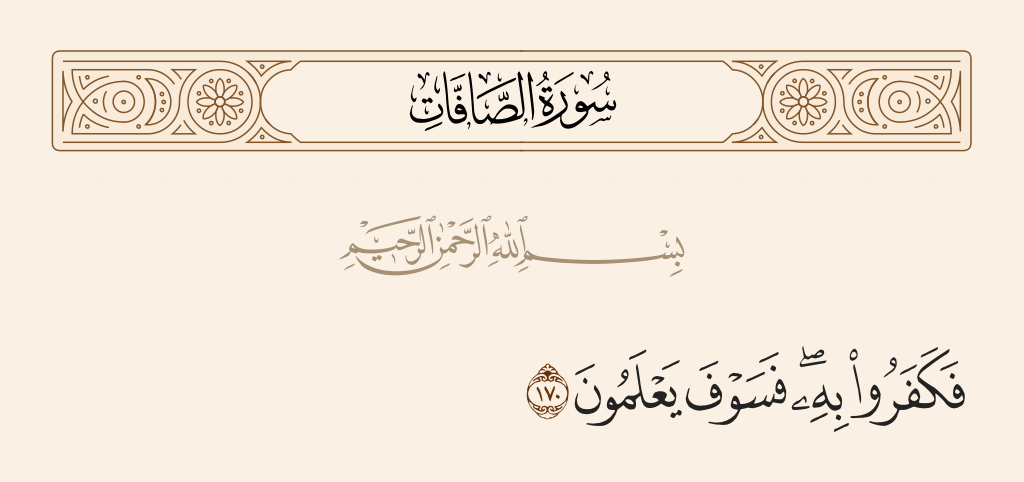 سُورَةُ الصَّافَّاتِ
بِسْمِ ٱللَّهِ ٱلرَّحْمَٰنِ ٱلرَّحِيمِ
فَكَفَرُوا۟ بِهِۦ ۖ فَسَوْفَ يَعْلَمُونَ ١٧٠